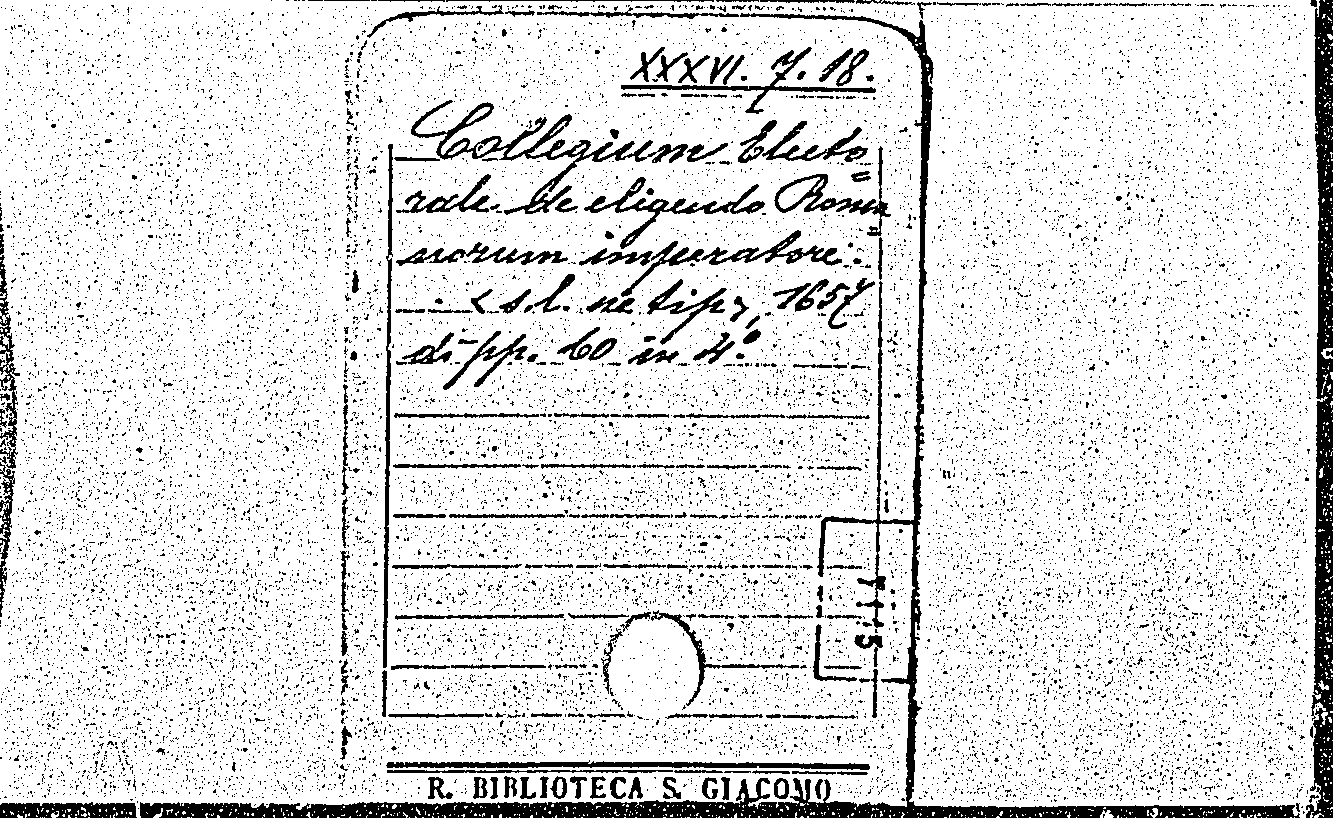 XXXVI. 7. 18.
Collegium Electo=
rale de eligendo Roma=
norum imperatore.
< s.l. ne tip>, 1657
di pp. 60 in 4.º
R. BIBLIOTECA S. GIACOMO